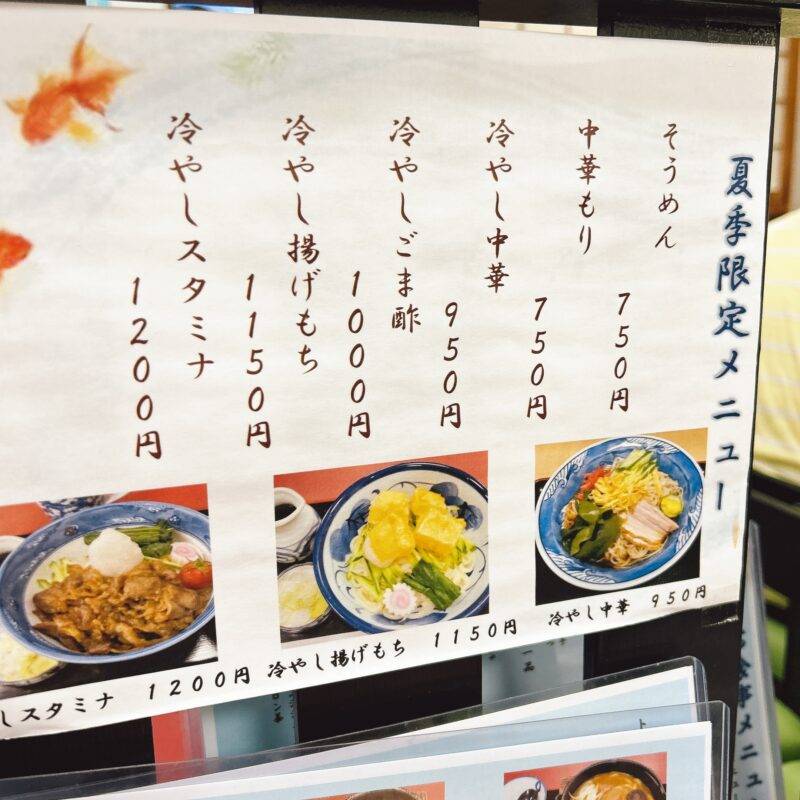 夏季限定メニュー
そうめん
750円
中華もり
750円
冷やし中華
950円
冷やしごま酢
1000円
冷やし揚げもち
1150円
冷やしスタミナ
1200円
冷やし中華 950円
冷やし揚げもち 1150円
しスタミナ 1200円
一品
食事メニュ